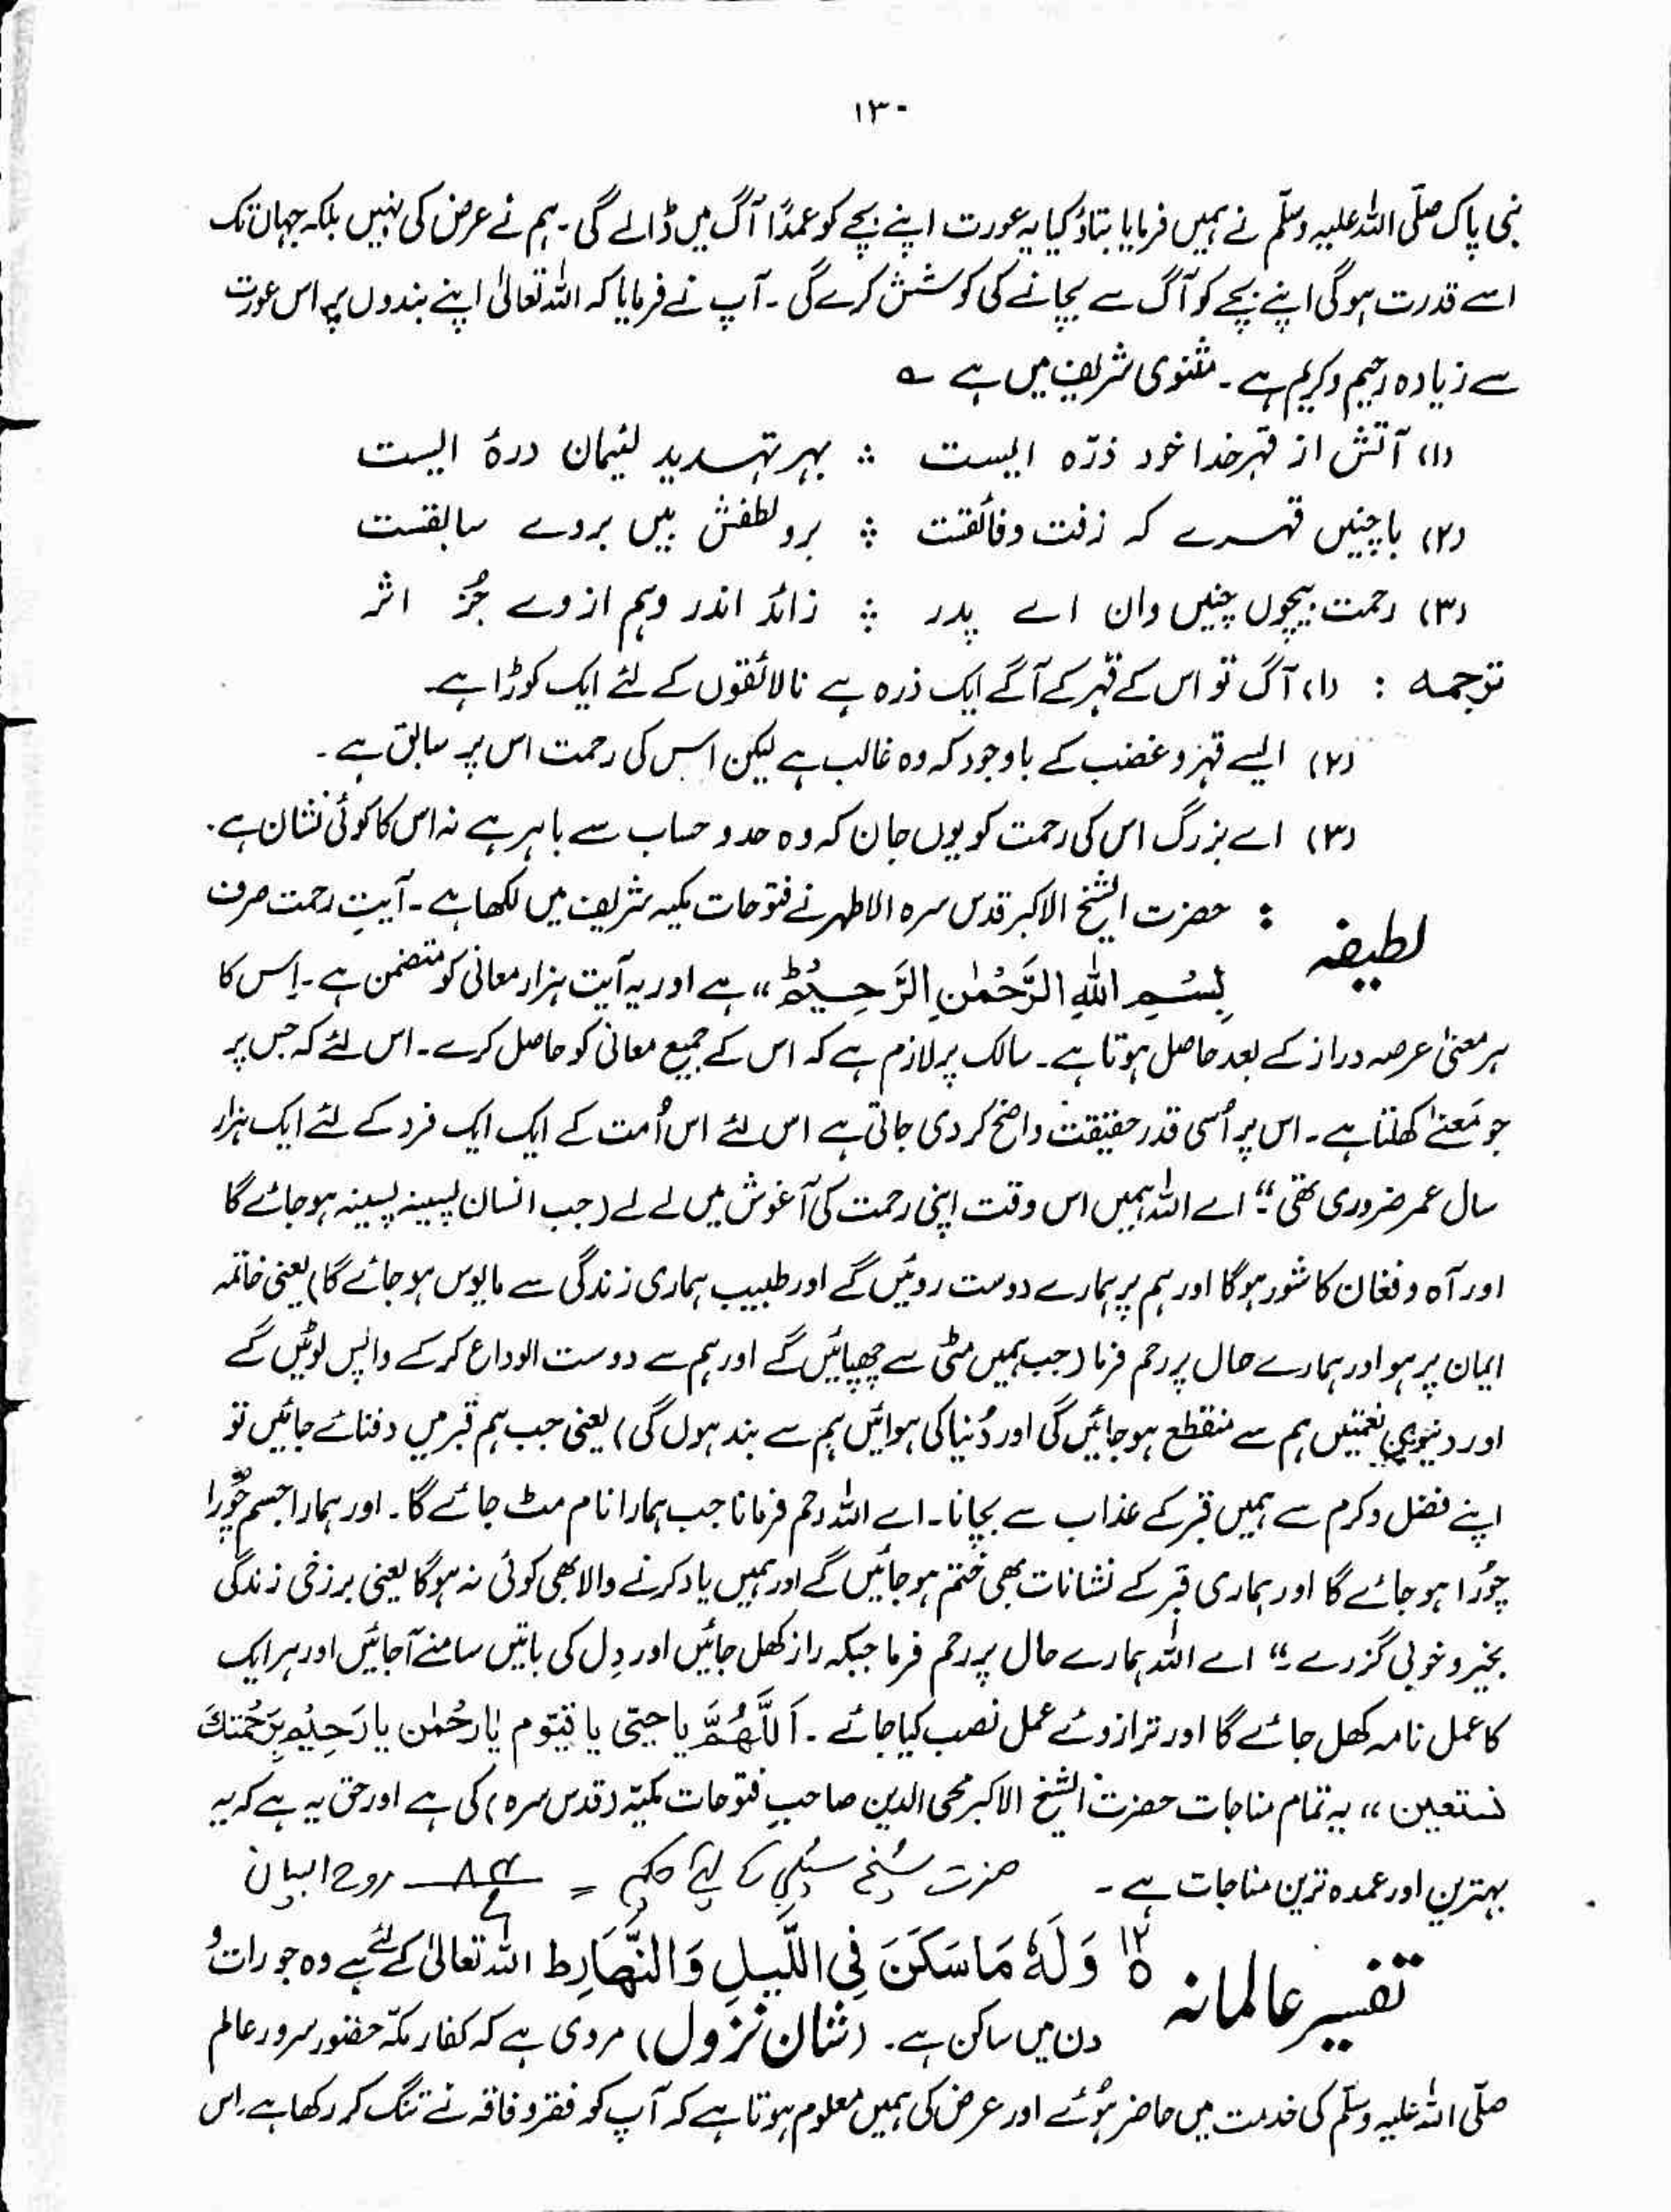 ۱۳۰
نبی پاک صلّی اللہ علیہ وسلّم نے ہمیں فرمایا بتاؤ کیا یہ عورت اپنے بچے کو عمداً آگ میں ڈالے گی۔ ہم نے عرض کی نہیں بلکہ جہاں تک
اسے قدرت ہوگی اپنے بچے کو آگ سے بچانے کی کوشش کرے گی۔ آپ نے فرمایا کہ اللہ تعالیٰ اپنے بندوں پر اس عورت
سے زیادہ رحیم و کریم ہے۔ مثنوی شریف میں ہے ؎
(۱) آتش از قہر خدا خود ذرّہ ایست ؞ بہر تہدید لئیمان درۂ ایست
(۲) باچنیں قہرے کہ زفت وفائقست ؞ برد لطفش بیں بروے سابقست
(۳) رحمت بیچوں چنیں وان اے پدر ؞ زائد اندر وہم ازوے جُز اثر
ترجمہ : (۱) آگ تو اس کے قہر کے آگے ایک ذرہ ہے نالائقوں کے لئے ایک کوڑا ہے۔
(۲) ایسے قہر و غضب کے باوجود کہ وہ غالب ہے لیکن اس کی رحمت اس پر سابق ہے۔
(۳) اے بزرگ اس کی رحمت کو یوں جان کہ وہ حد و حساب سے باہر ہے نہ اس کا کوئی نشان ہے۔
لطیفہ : حضرت الشیخ الاکبر قدس سرہ الاطہر نے فتوحات مکیہ شریف میں لکھا ہے۔ آیتِ رحمت صرف
بِسْمِ اللّٰهِ الرَّحْمٰنِ الرَّحِيْمِ ،، ہے اور یہ آیت ہزار معانی کو متضمن ہے۔ اِس کا
ہر معنیٰ عرصہ دراز کے بعد حاصل ہوتا ہے۔ سالک پر لازم ہے کہ اس کے جمیع معانی کو حاصل کرے۔ اس لئے کہ جس پر
جو مَعنےٰ کھلتا ہے۔ اس پر اُسی قدر حقیقت واضح کر دی جاتی ہے اس لئے اس اُمت کے ایک ایک فرد کے لئے ایک ہزار
سال عمر ضروری تھی ‘‘۔ اے اللہ ہمیں اس وقت اپنی رحمت کی آغوش میں لے لے (جب انسان پسینہ پسینہ ہوجائے گا
اور آہ و فغان کا شور ہوگا اور ہم پر ہمارے دوست روئیں گے اور طبیب ہماری زندگی سے مایوس ہو جائے گا) یعنی خاتمہ
ایمان پر ہو اور ہمارے حال پر رحم فرما (جب ہمیں مٹی سے چھپائیں گے اور ہم سے دوست الوداع کر کے واپس لوٹیں گے
اور دنیوی نعمتیں ہم سے منقطع ہوجائیں گی اور دُنیا کی ہوائیں ہم سے بند ہوں گی) یعنی جب ہم قبر میں دفنائے جائیں تو
اپنے فضل و کرم سے ہمیں قبر کے عذاب سے بچانا۔ اے اللہ رحم فرمانا جب ہمارا نام مٹ جائے گا۔ اور ہمارا جسم چُورا
چُورا ہو جائے گا اور ہماری قبر کے نشانات بھی ختم ہو جائیں گے اور ہمیں یاد کرنے والا بھی کوئی نہ ہوگا یعنی برزخی زندگی
بخیر و خوبی گزرے۔‘‘ اے اللہ ہمارے حال پر رحم فرما جبکہ راز کھل جائیں اور دِل کی باتیں سامنے آجائیں اور ہر ایک
کا عمل نامہ کھل جائے گا اور ترازوئے عمل نصب کیا جائے۔ اَللّٰهُمَّ يا حيّ يا قيّوم يا رحْمٰن يا رَحِيْم بِرَحْمَتِكَ
نستعين ،، یہ تمام مناجات حضرت الشیخ الاکبر محی الدین صاحبِ فتوحات مکیّہ (قدس سرہ) کی ہے اور حق یہ ہے کہ یہ
بہترین اور عمدہ ترین مناجات ہے۔ حضرت شیخ کے لیے حکم = روح البیان
تفسیر عالمانہ ۱۲ وَلَهٗ مَا سَكَنَ فِى اللَّيلِ وَالنَّهَارِط اللہ تعالیٰ کے لئے ہے وہ جو رات و
دن میں ساکن ہے۔ (شانِ نزول) مروی ہے کہ کفار مکّہ حضور سرور عالم
صلّی اللہ علیہ وسلّم کی خدمت میں حاضر ہُوئے اور عرض کی ہمیں معلوم ہوتا ہے کہ آپ کو فقر و فاقہ نے تنگ کر رکھا ہے۔ اس